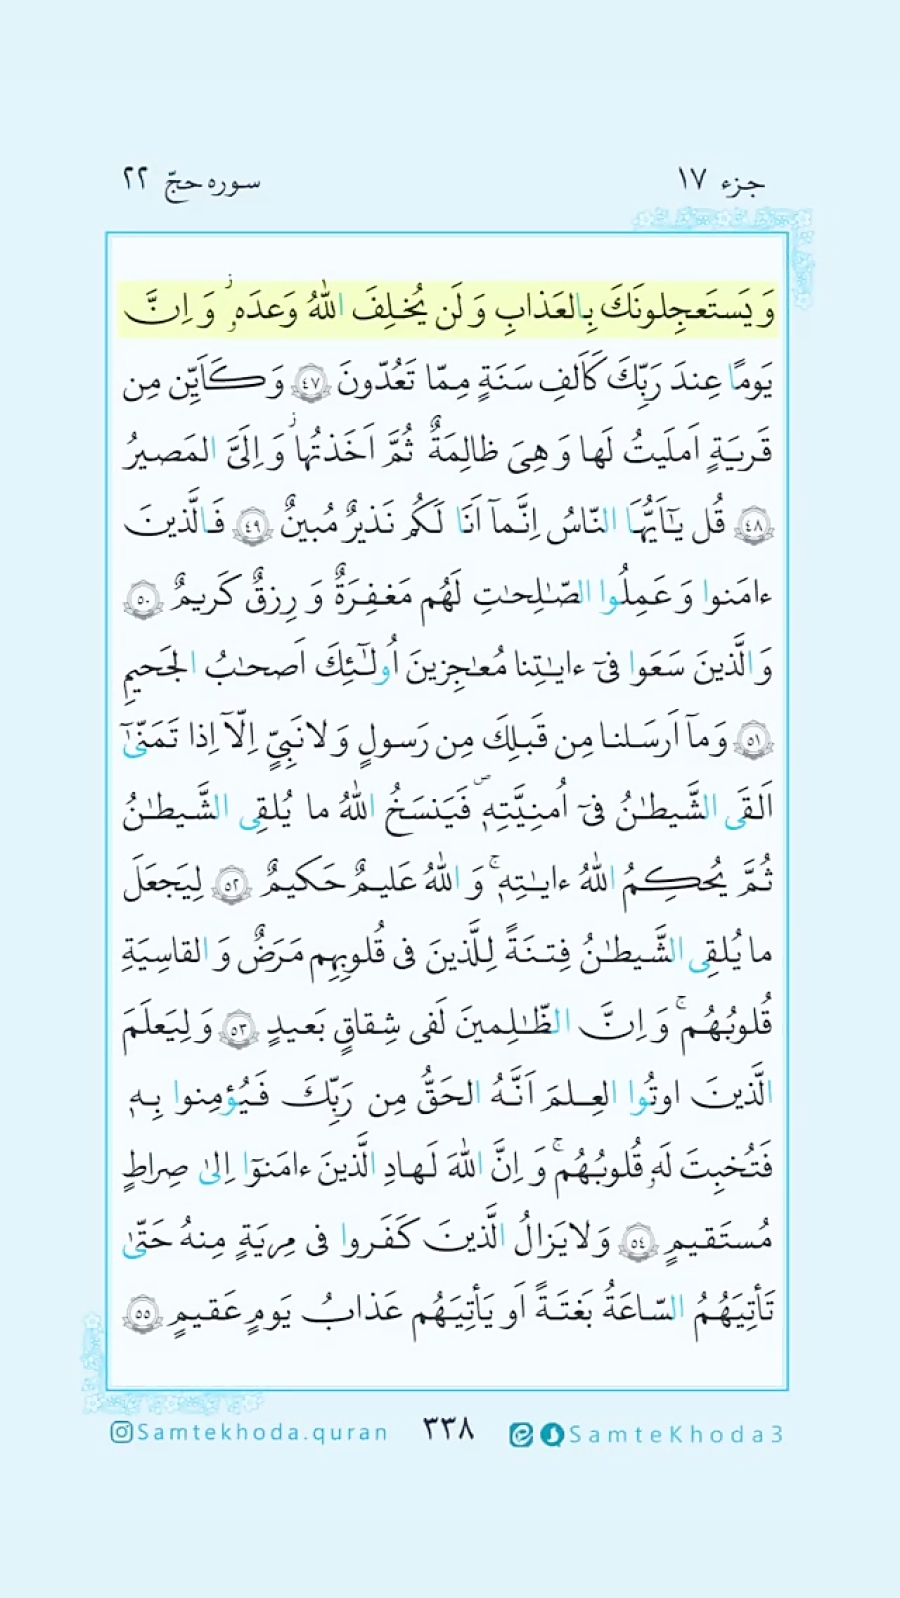 جزء ۱۷
سوره حجّ ۲۲
وَ يَستَعجِلونَكَ بِالعَذابِ وَ لَن يُخلِفَ اللّٰهُ وَعدَهۥۚ وَ اِنَّ
يَومًا عِندَ رَبِّكَ كَاَلفِ سَنَةٍ مِمّا تَعُدّونَ ٤٧ وَ كَاَيِّن مِن
قَريَةٍ اَملَيتُ لَها وَ هِىَ ظالِمَةٌ ثُمَّ اَخَذتُها وَ اِلَىَّ المَصيرُ
٤٨ قُل يٰٓاَيُّهَا النّاسُ اِنَّمآ اَنَا لَكُم نَذيرٌ مُبينٌ ٤٩ فَالَّذينَ
ءامَنوا وَ عَمِلُوا الصّٰلِحٰتِ لَهُم مَغفِرَةٌ وَ رِزقٌ كَريمٌ ٥٠
وَالَّذينَ سَعَوا فىٓ ءايٰتِنا مُعٰجِزينَ اُولٰٓئِكَ اَصحٰبُ الجَحيمِ
٥١ وَمآ اَرسَلنا مِن قَبلِكَ مِن رَسولٍ وَ لا نَبِىٍّ اِلّآ اِذا تَمَنّىٰٓ
اَلقَى الشَّيطٰنُ فىٓ اُمنِيَّتِهٖ فَيَنسَخُ اللّٰهُ ما يُلقِى الشَّيطٰنُ
ثُمَّ يُحكِمُ اللّٰهُ ءايٰتِهٖ وَ اللّٰهُ عَليمٌ حَكيمٌ ٥٢ لِيَجعَلَ
ما يُلقِى الشَّيطٰنُ فِتنَةً لِلَّذينَ فى قُلوبِهِم مَرَضٌ وَ القاسِيَةِ
قُلوبُهُم وَ اِنَّ الظّٰلِمينَ لَفى شِقاقٍ بَعيدٍ ٥٣ وَ لِيَعلَمَ
الَّذينَ اوتُوا العِلمَ اَنَّهُ الحَقُّ مِن رَبِّكَ فَيُؤمِنوا بِهٖ
فَتُخبِتَ لَهۥ قُلوبُهُم وَ اِنَّ اللّٰهَ لَهادِ الَّذينَ ءامَنوٓا اِلىٰ صِراطٍ
مُستَقيمٍ ٥٤ وَ لا يَزالُ الَّذينَ كَفَروا فى مِريَةٍ مِنهُ حَتّىٰ
تَأتِيَهُمُ السّاعَةُ بَغتَةً اَو يَأتِيَهُم عَذابُ يَومٍ عَقيمٍ ٥٥
Samtekhoda.quran
۳۳۸
SamteKhoda3